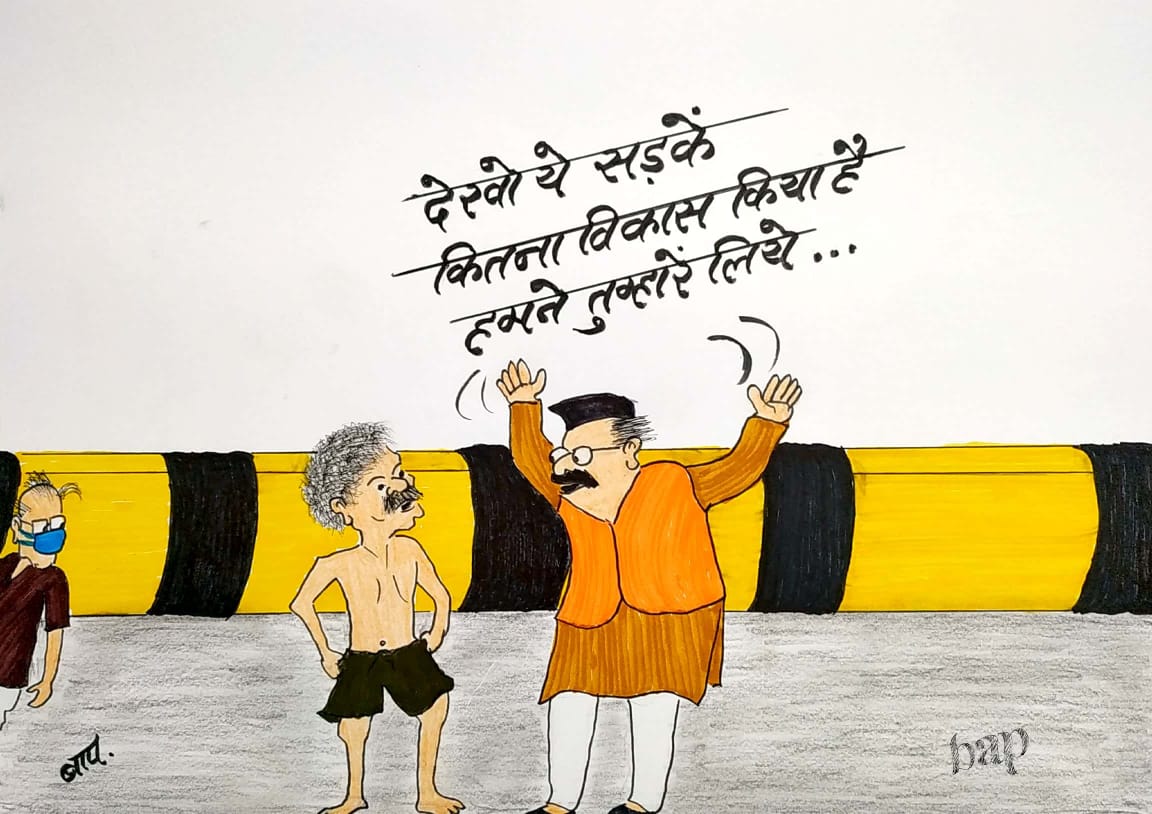 देखो ये सड़कें
कितना विकास किया है
हमने तुम्हारें लिये ...
बाप.
bap